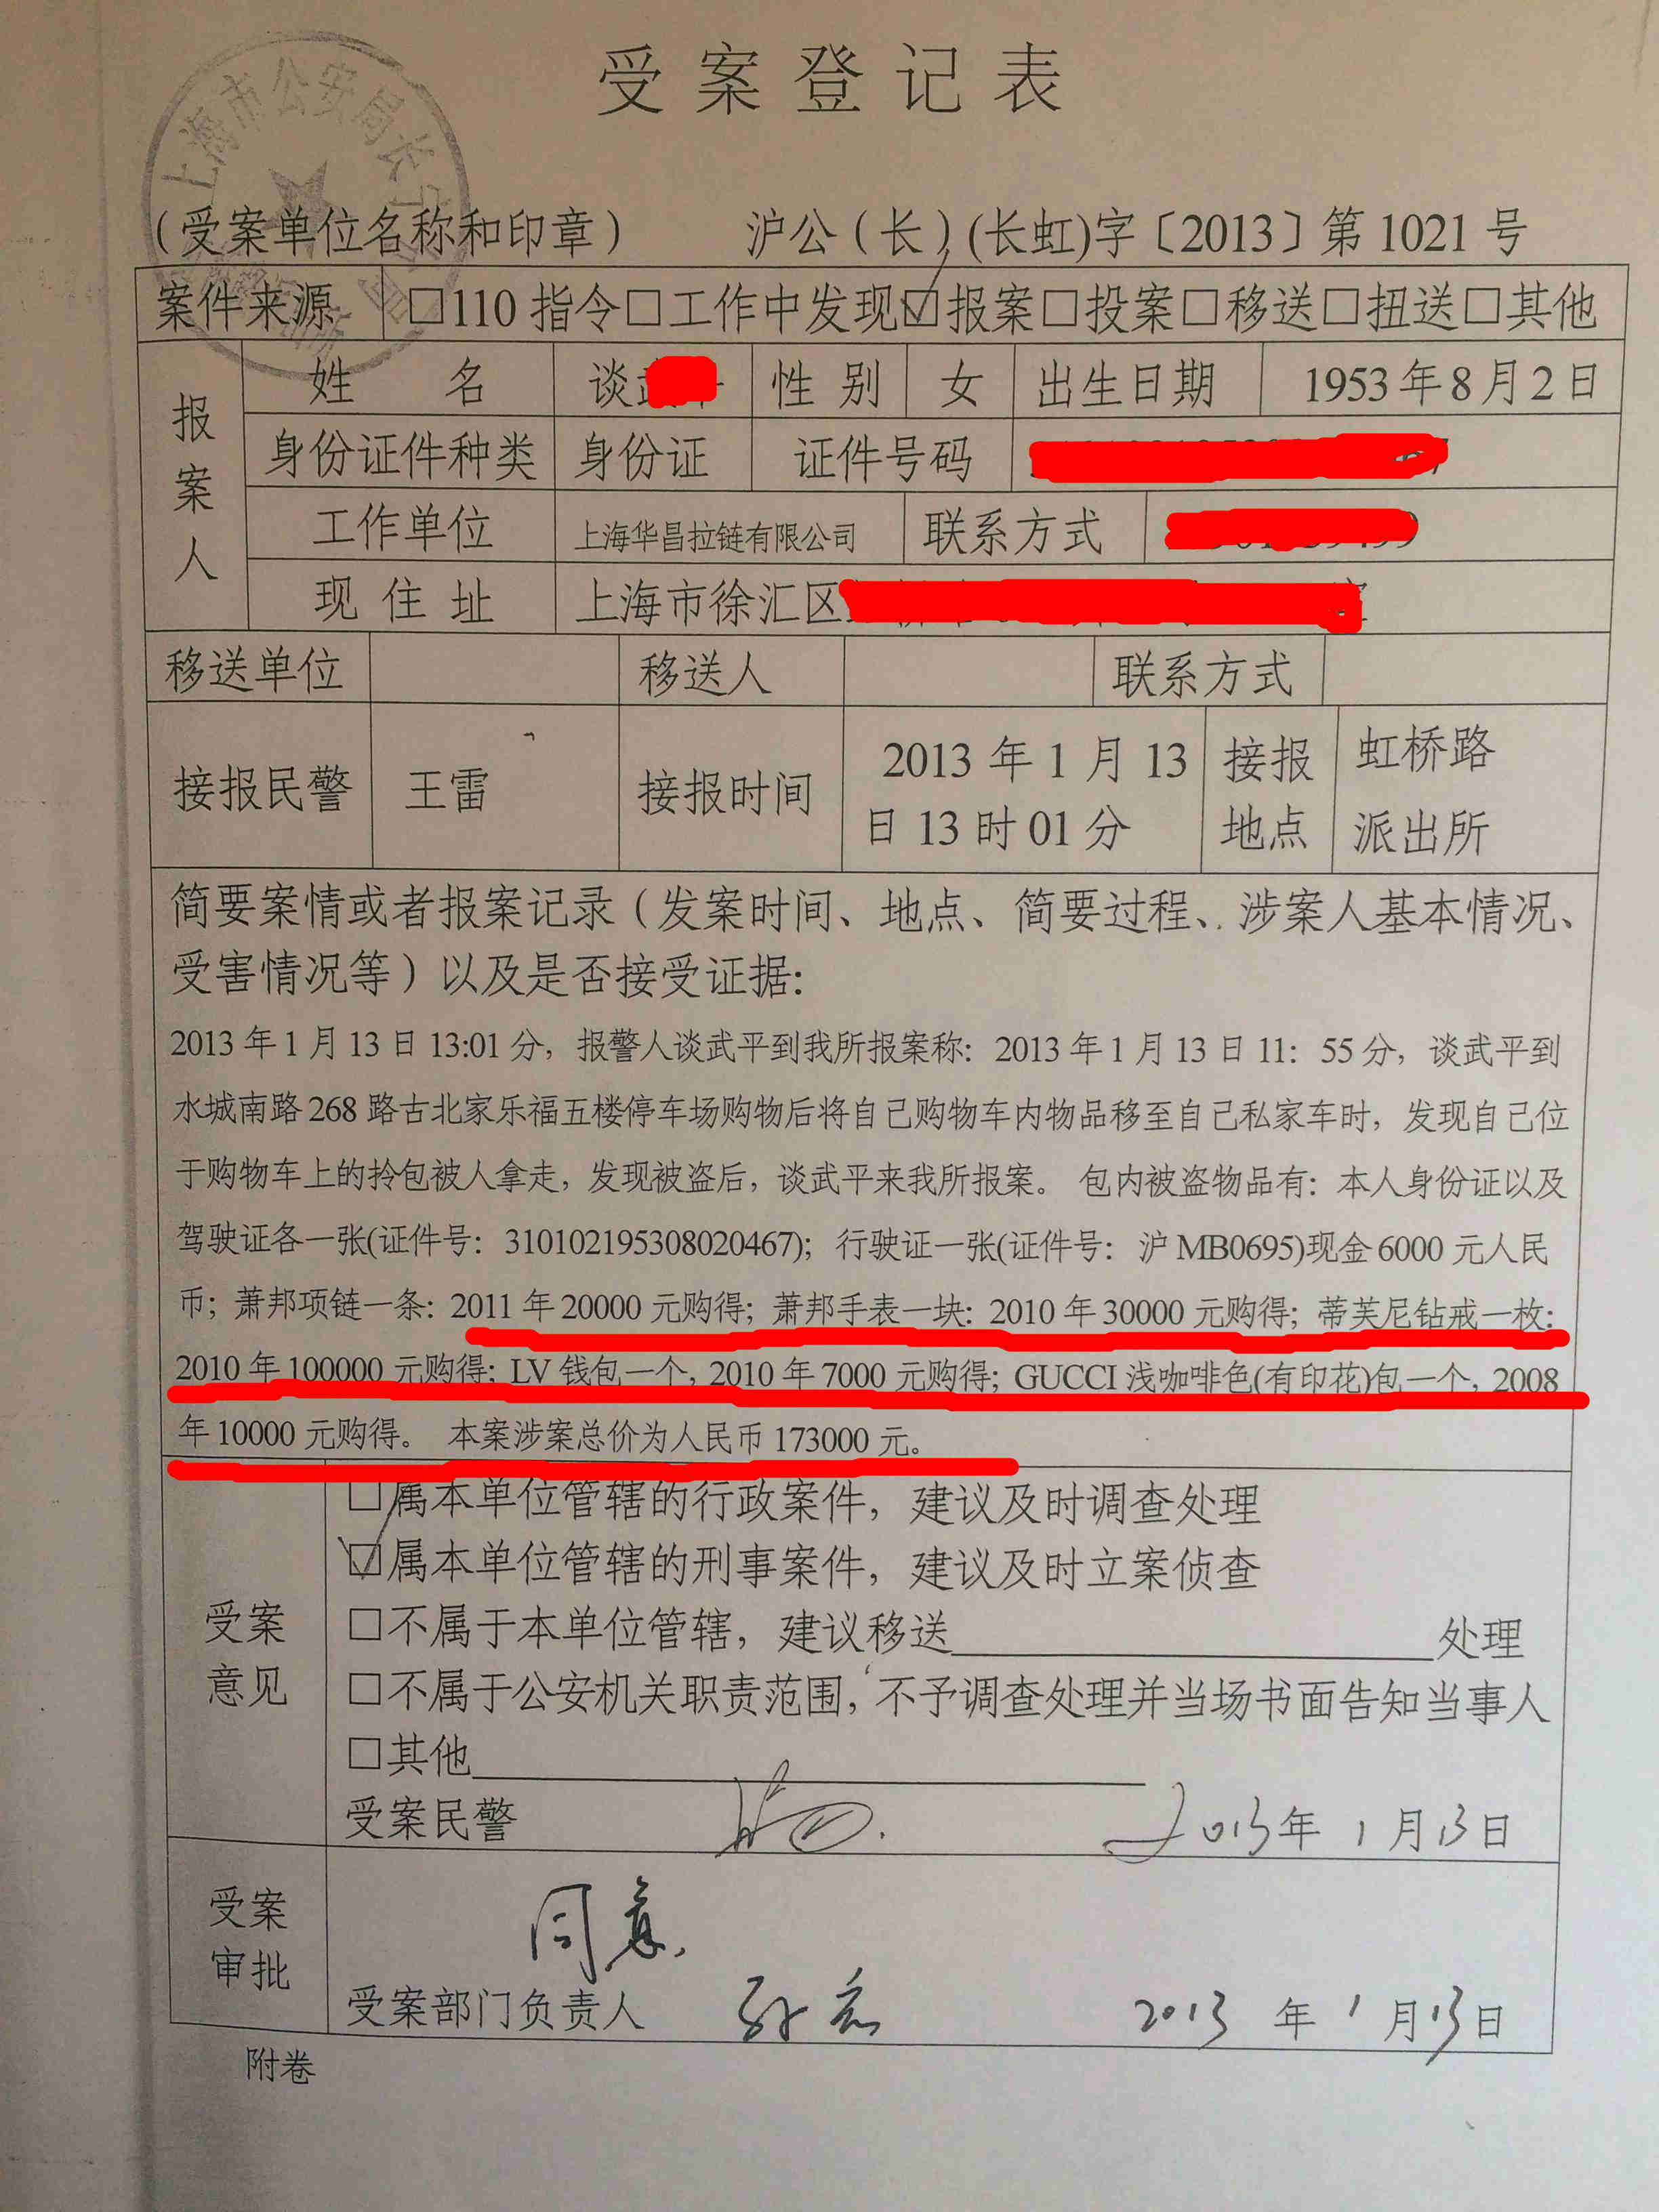 受案登记表
上海市公安局长
（受案单位名称和印章） 沪公（长）(长虹)字〔2013〕第 1021 号
案件来源 □110 指令□工作中发现☑报案□投案□移送□扭送□其他
报案人
姓 名 谈 性 别 女 出生日期 1953 年 8 月 2 日
身份证件种类 身份证 证件号码
工作单位 上海华昌拉链有限公司 联系方式
现 住 址 上海市徐汇区
移送单位 移送人 联系方式
接报民警 王雷 接报时间 2013 年 1 月 13 日 13 时 01 分 接报地点 虹桥路派出所
简要案情或者报案记录（发案时间、地点、简要过程、涉案人基本情况、
受害情况等）以及是否接受证据：
2013 年 1 月 13 日 13:01 分，报警人谈武平到我所报案称：2013 年 1 月 13 日 11：55 分，谈武平到
水城南路 268 路古北家乐福五楼停车场购物后将自己购物车内物品移至自己私家车时，发现自己位
于购物车上的拎包被人拿走，发现被盗后，谈武平来我所报案。 包内被盗物品有：本人身份证以及
驾驶证各一张(证件号：310102195308020467)；行驶证一张(证件号：沪 MB0695)现金 6000 元人民
币；萧邦项链一条：2011 年 20000 元购得；萧邦手表一块：2010 年 30000 元购得；蒂芙尼钻戒一枚：
2010 年 100000 元购得；LV 钱包一个，2010 年 7000 元购得；GUCCI 浅咖啡色(有印花)包一个，2008
年 10000 元购得。 本案涉案总价为人民币 173000 元。
受案意见
□属本单位管辖的行政案件，建议及时调查处理
☑属本单位管辖的刑事案件，建议及时立案侦查
□不属于本单位管辖，建议移送 处理
□不属于公安机关职责范围，不予调查处理并当场书面告知当事人
□其他
受案民警 2013年 1 月 13日
受案审批
同意
受案部门负责人 2013 年 1 月 13日
附卷